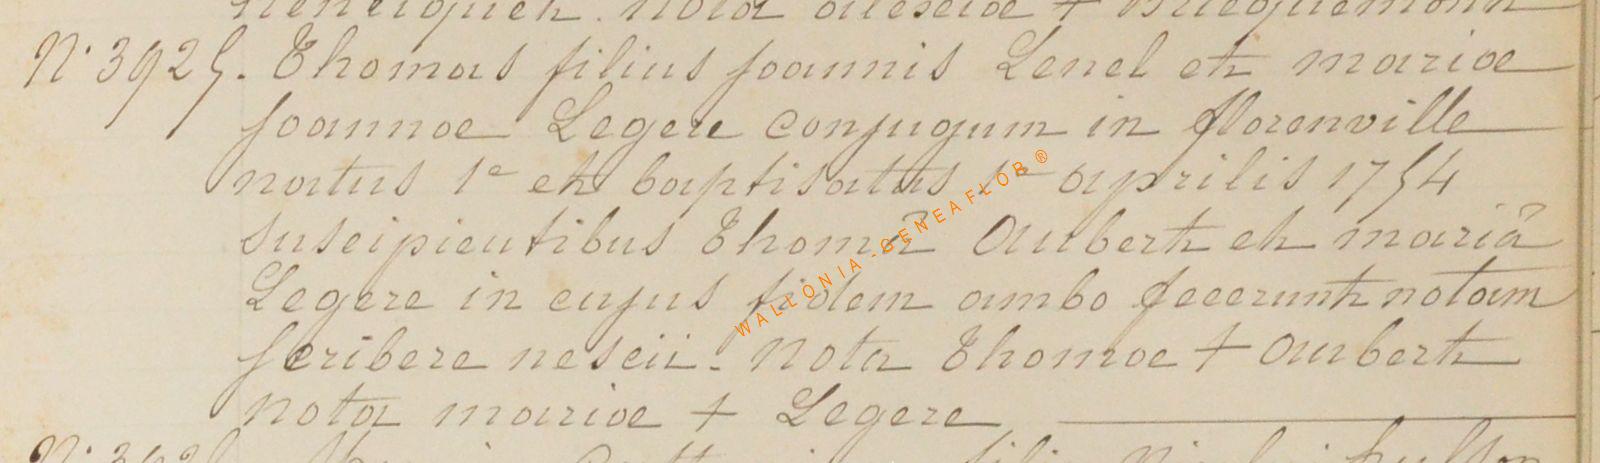 nota alexiae + Bricquemont
N° 3925. Thomas filius joannis Lenel et mariae
joannae Legere conjugum in florenville
natus 1ᵉ et baptisatus 1ᵉ aprilis 1754
suscipientibus Thomâ Aubert et mariâ
Legere in cujus fidem ambo fecerunt notam
scribere nescii. nota Thomae + Aubert
nota mariae + Legere
WALLONIA-GENEAFLOR ®
N°